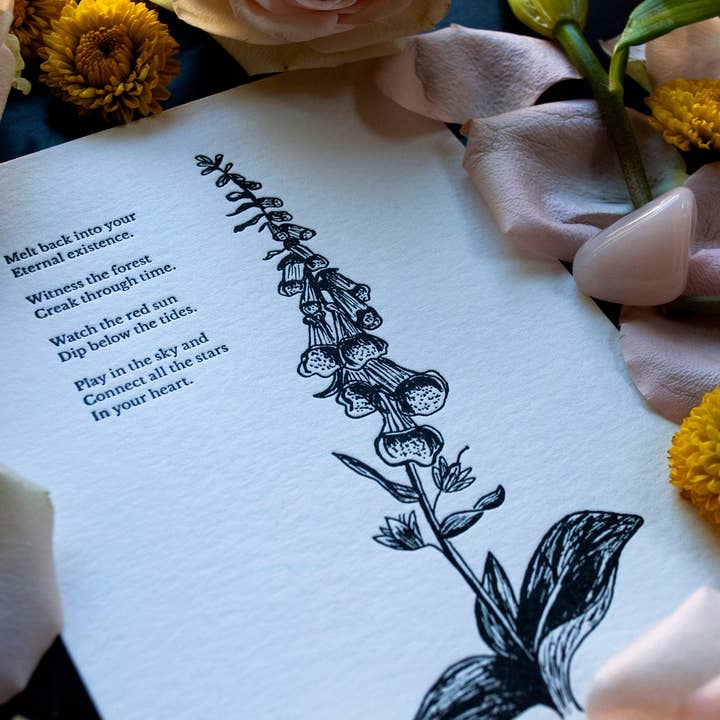 Melt back into your
Eternal existence.
Witness the forest
Creak through time.
Watch the red sun
Dip below the tides.
Play in the sky and
Connect all the stars
In your heart.